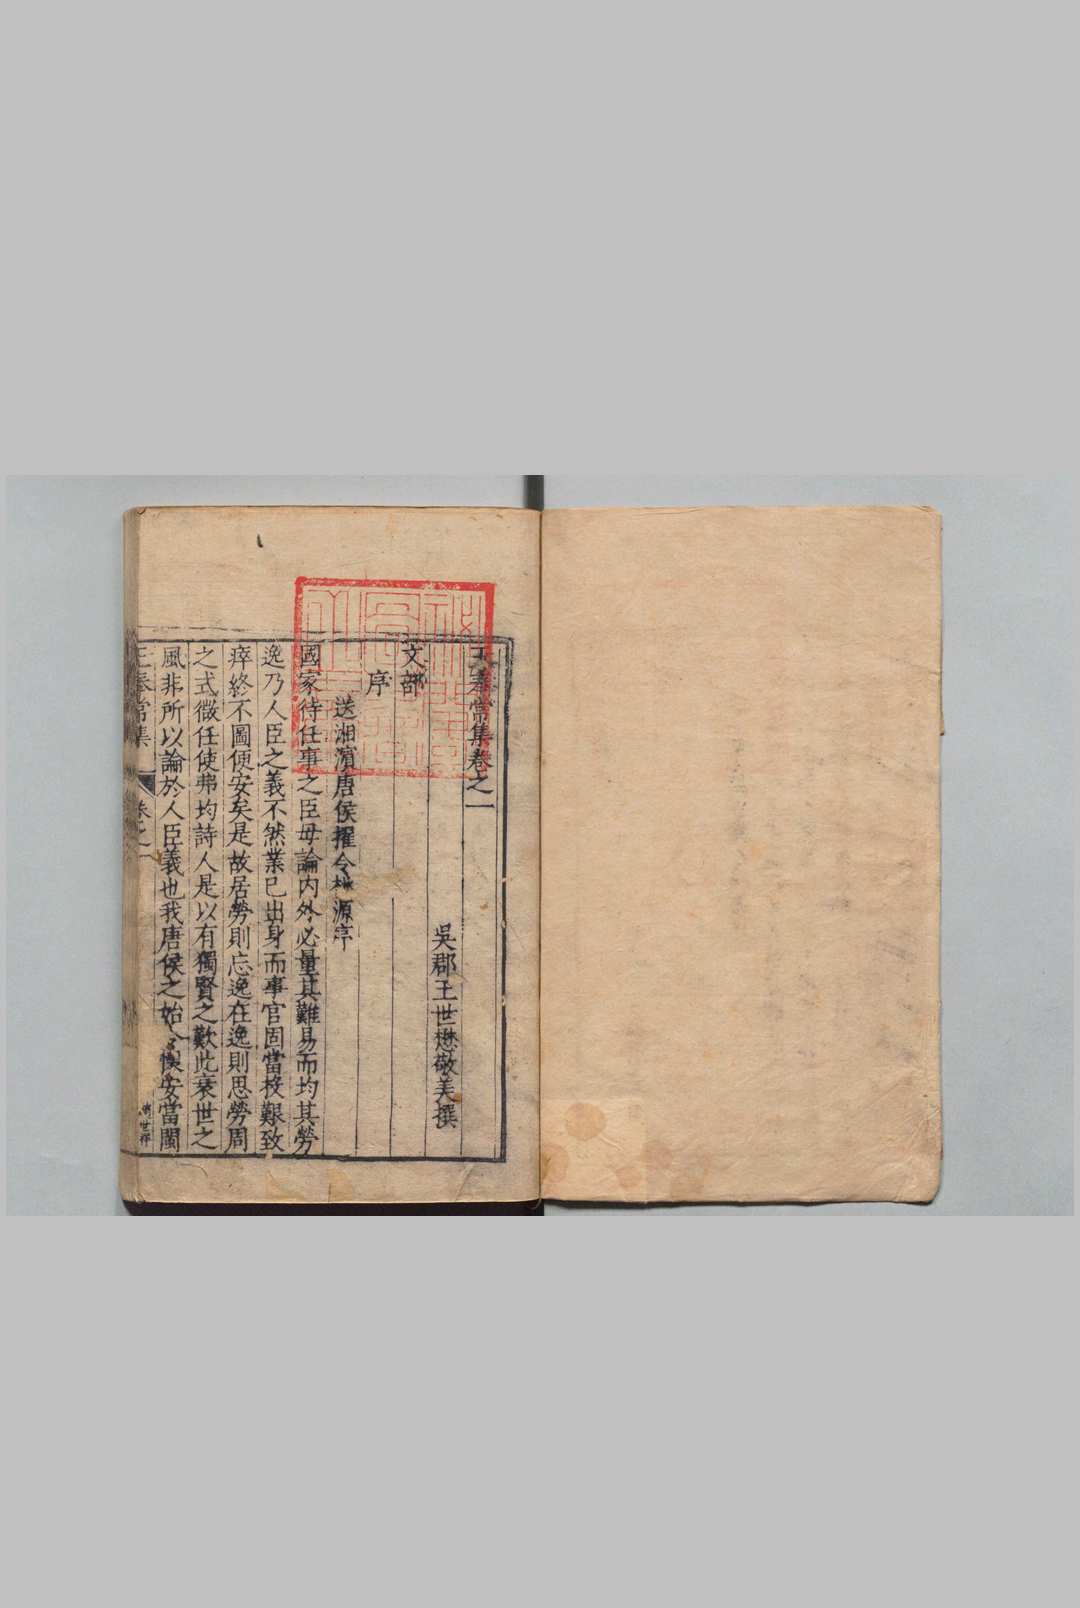 王奉常集卷之一
吳郡王世懋敬美撰
文部
序
送湘濱唐侯擢令桃源序
國家待任事之臣毋論內外必量其難易而均其勞
逸乃人臣之義不然業已出身而事官固當投艱致
瘁終不圖便安矣是故居勞則忘逸在逸則思勞周
之式微任使弗均詩人是以有獨賢之歎此衰世之
風非所以論於人臣義也我唐侯之始令惧安當閩
王奉常集
卷之一